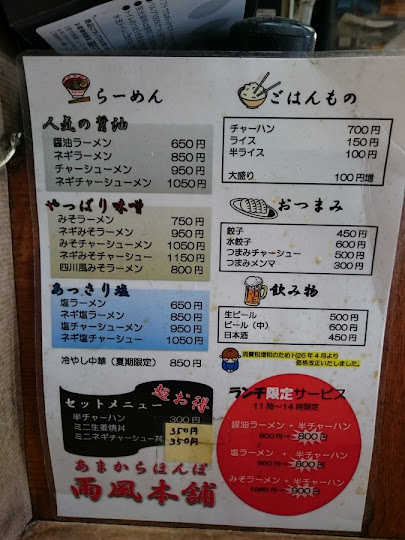 らーめん
人気の醤油
醤油ラーメン 650円
ネギラーメン 850円
チャーシューメン 950円
ネギチャーシューメン 1050円
やっぱり味噌
みそラーメン 750円
ネギみそラーメン 950円
みそチャーシューメン 1050円
ネギみそチャーシューメン 1150円
四川風みそラーメン 800円
あっさり塩
塩ラーメン 650円
ネギ塩ラーメン 850円
塩チャーシューメン 950円
ネギ塩チャーシューメン 1050円
冷やし中華(夏期限定) 850円
超お得
セットメニュー
半チャーハン 300円
ミニ生姜焼丼 350円
ミニネギチャーシュー丼 350円
あまからほんぽ
雨風本舗
ごはんもの
チャーハン 700円
ライス 150円
半ライス 100円
大盛り 100円増
おつまみ
餃子 450円
水餃子 600円
つまみチャーシュー 500円
つまみメンマ 300円
飲み物
生ビール 500円
ビール(中) 600円
日本酒 450円
消費税増税のためH26年4月より
価格改正いたしました。
ランチ限定サービス
11時〜14時限定
醤油ラーメン + 半チャーハン
→800円
塩ラーメン + 半チャーハン
→800円
みそラーメン + 半チャーハン
→900円